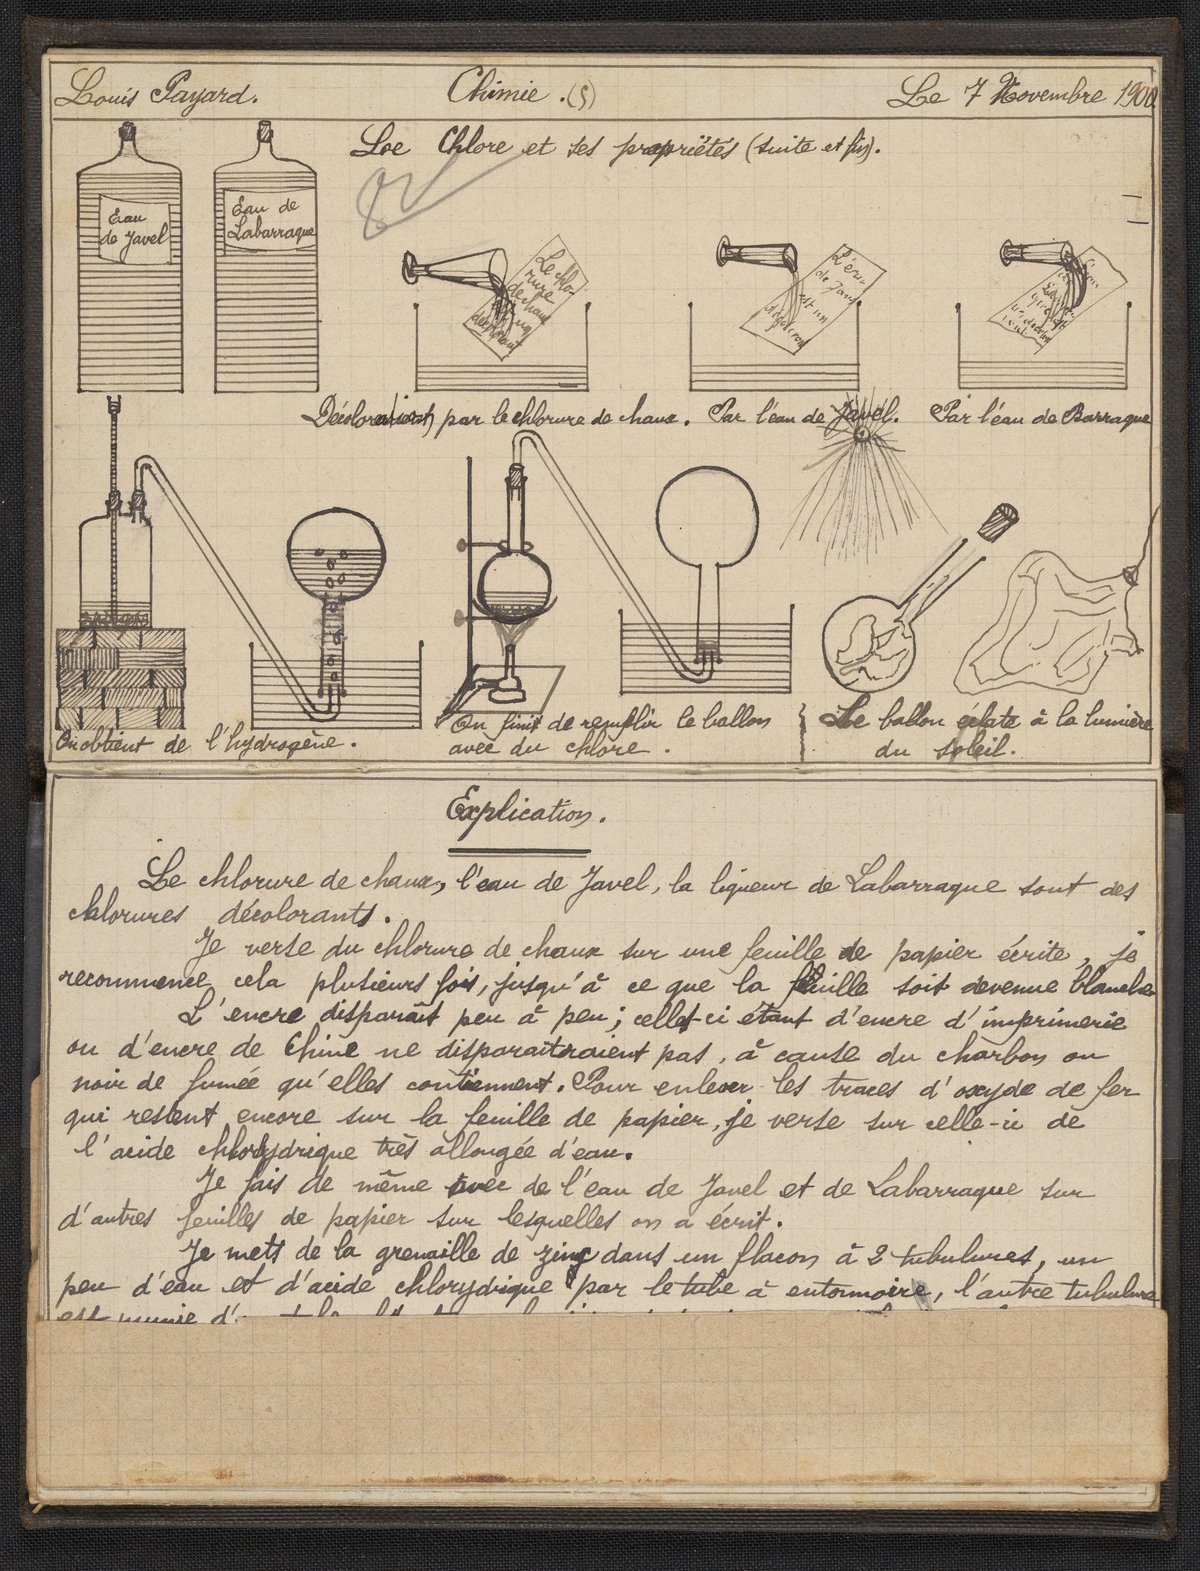 Louis Payard.
Chimie. (5)
Le 7 Novembre 1900
Le Chlore et ses propriétés (suite et fin).
Eau
de Javel
Eau de
Labarraque
Le chlo-
rure
de chaux
est un
décolorant
L'eau
de Jav
est un
décolorant
Décoloration par le chlorure de chaux. Par l'eau de Javel. Par l'eau de Barraque
On obtient de l'hydrogène.
On finit de remplir le ballon
avec du chlore.
Le ballon éclate à la lumière
du soleil.
Explication.
Le chlorure de chaux, l'eau de Javel, la liqueur de Labarraque sont des
chlorures décolorants.
Je verse du chlorure de chaux sur une feuille de papier écrite, je
recommence cela plusieurs fois, jusqu'à ce que la feuille soit devenue blanche
L'encre disparaît peu à peu; celle-ci étant d'encre d'imprimerie
ou d'encre de Chine ne disparaîtraient pas, à cause du charbon ou
noir de fumée qu'elles contiennent. Pour enlever les traces d'oxyde de fer
qui restent encore sur la feuille de papier, je verse sur celle-ci de
l'acide chlorydrique très allongée d'eau.
Je fais de même avec de l'eau de Javel et de Labarraque sur
d'autres feuilles de papier sur lesquelles on a écrit.
Je mets de la grenaille de zinc dans un flacon à 2 tubulures, un
peu d'eau et d'acide chlorydrique par le tube à entonnoire, l'autre tubulure
est munie d'